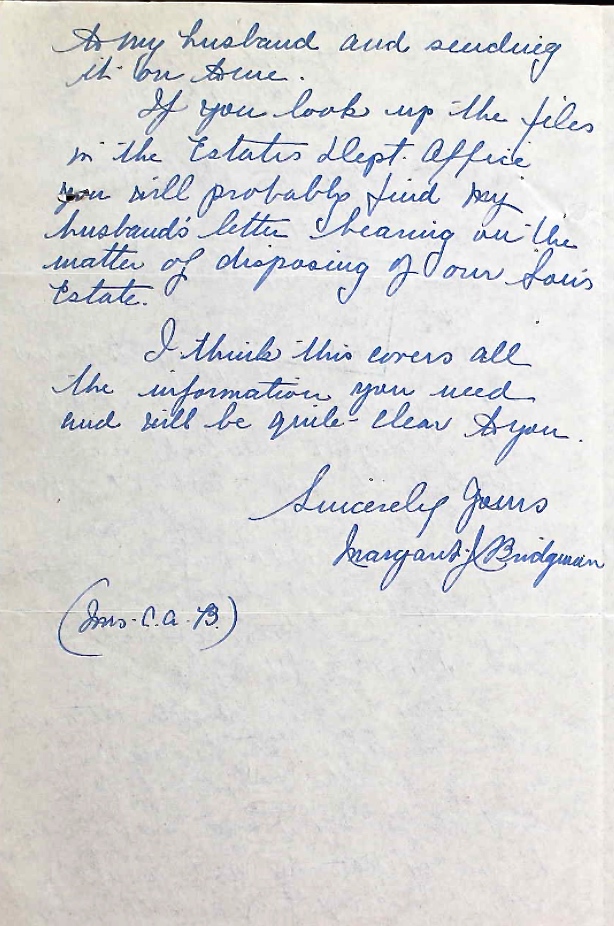 to my husband and sending
it on to me.
If you look up the files
in the Estates Dept. Office
you will probably find my
husband's letter bearing on the
matter of disposing of our Son's
Estate.
I think this covers all
the information you need
and will be quite clear to you.
Sincerely Yours
Margaret J. Bridgman
(Mrs. C. A. B.)